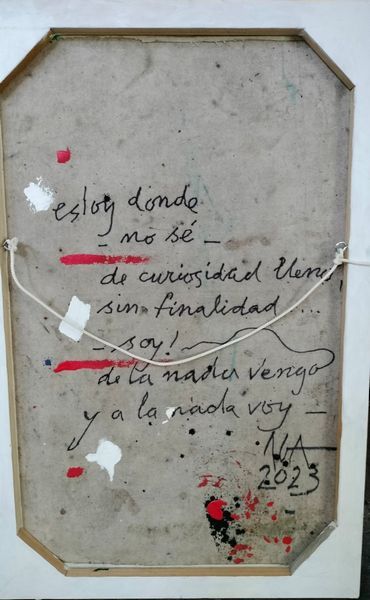 estoy donde
- no sé -
de curiosidad lleno,
sin finalidad ...
- soy!
de la nada vengo
y a la nada voy -
NA
2023